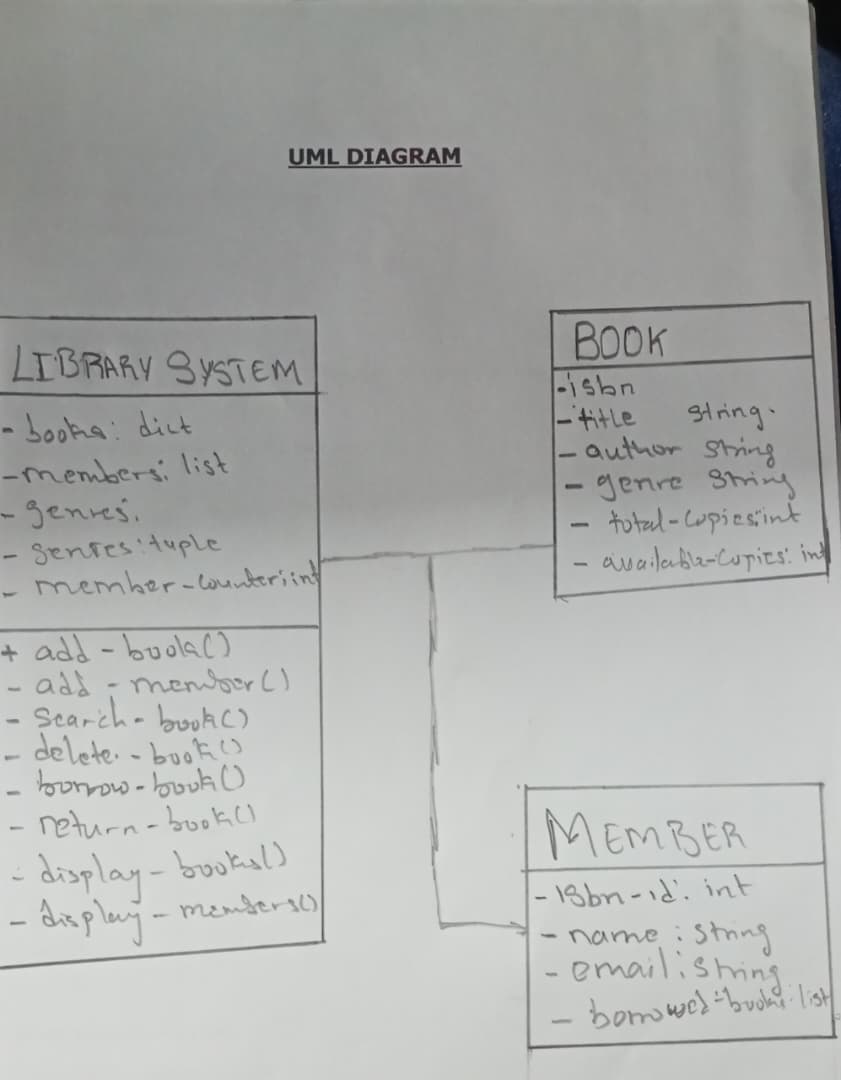 UML DIAGRAM
LIBRARY SYSTEM
- books: dict
- members: list
- genres:
- genres: tuple
- member-counter: int
+ add-book()
- add-member()
- Search-book()
- delete-book()
- borrow-book()
- return-book()
- display-books()
- display-members()
BOOK
- isbn
- title String.
- author String
- genre String
- total-copies: int
- available-copies: int
MEMBER
- isbn-id: int
- name: String
- email: String
- borrowed-books: list